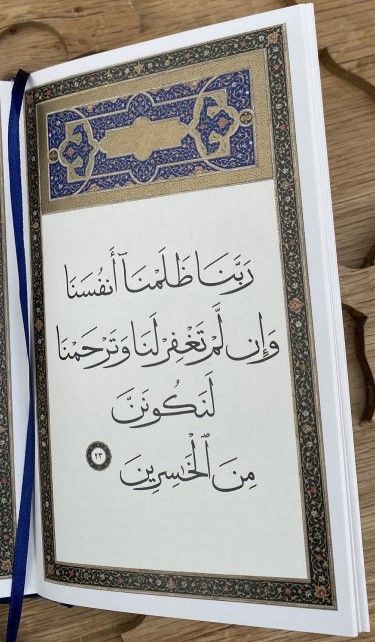 رَبَّنَا ظَلَمْنَآ أَنفُسَنَا
وَإِن لَّمْ تَغْفِرْ لَنَا وَتَرْحَمْنَا
لَنَكُونَنَّ
مِنَ ٱلْخَٰسِرِينَ ٢٣